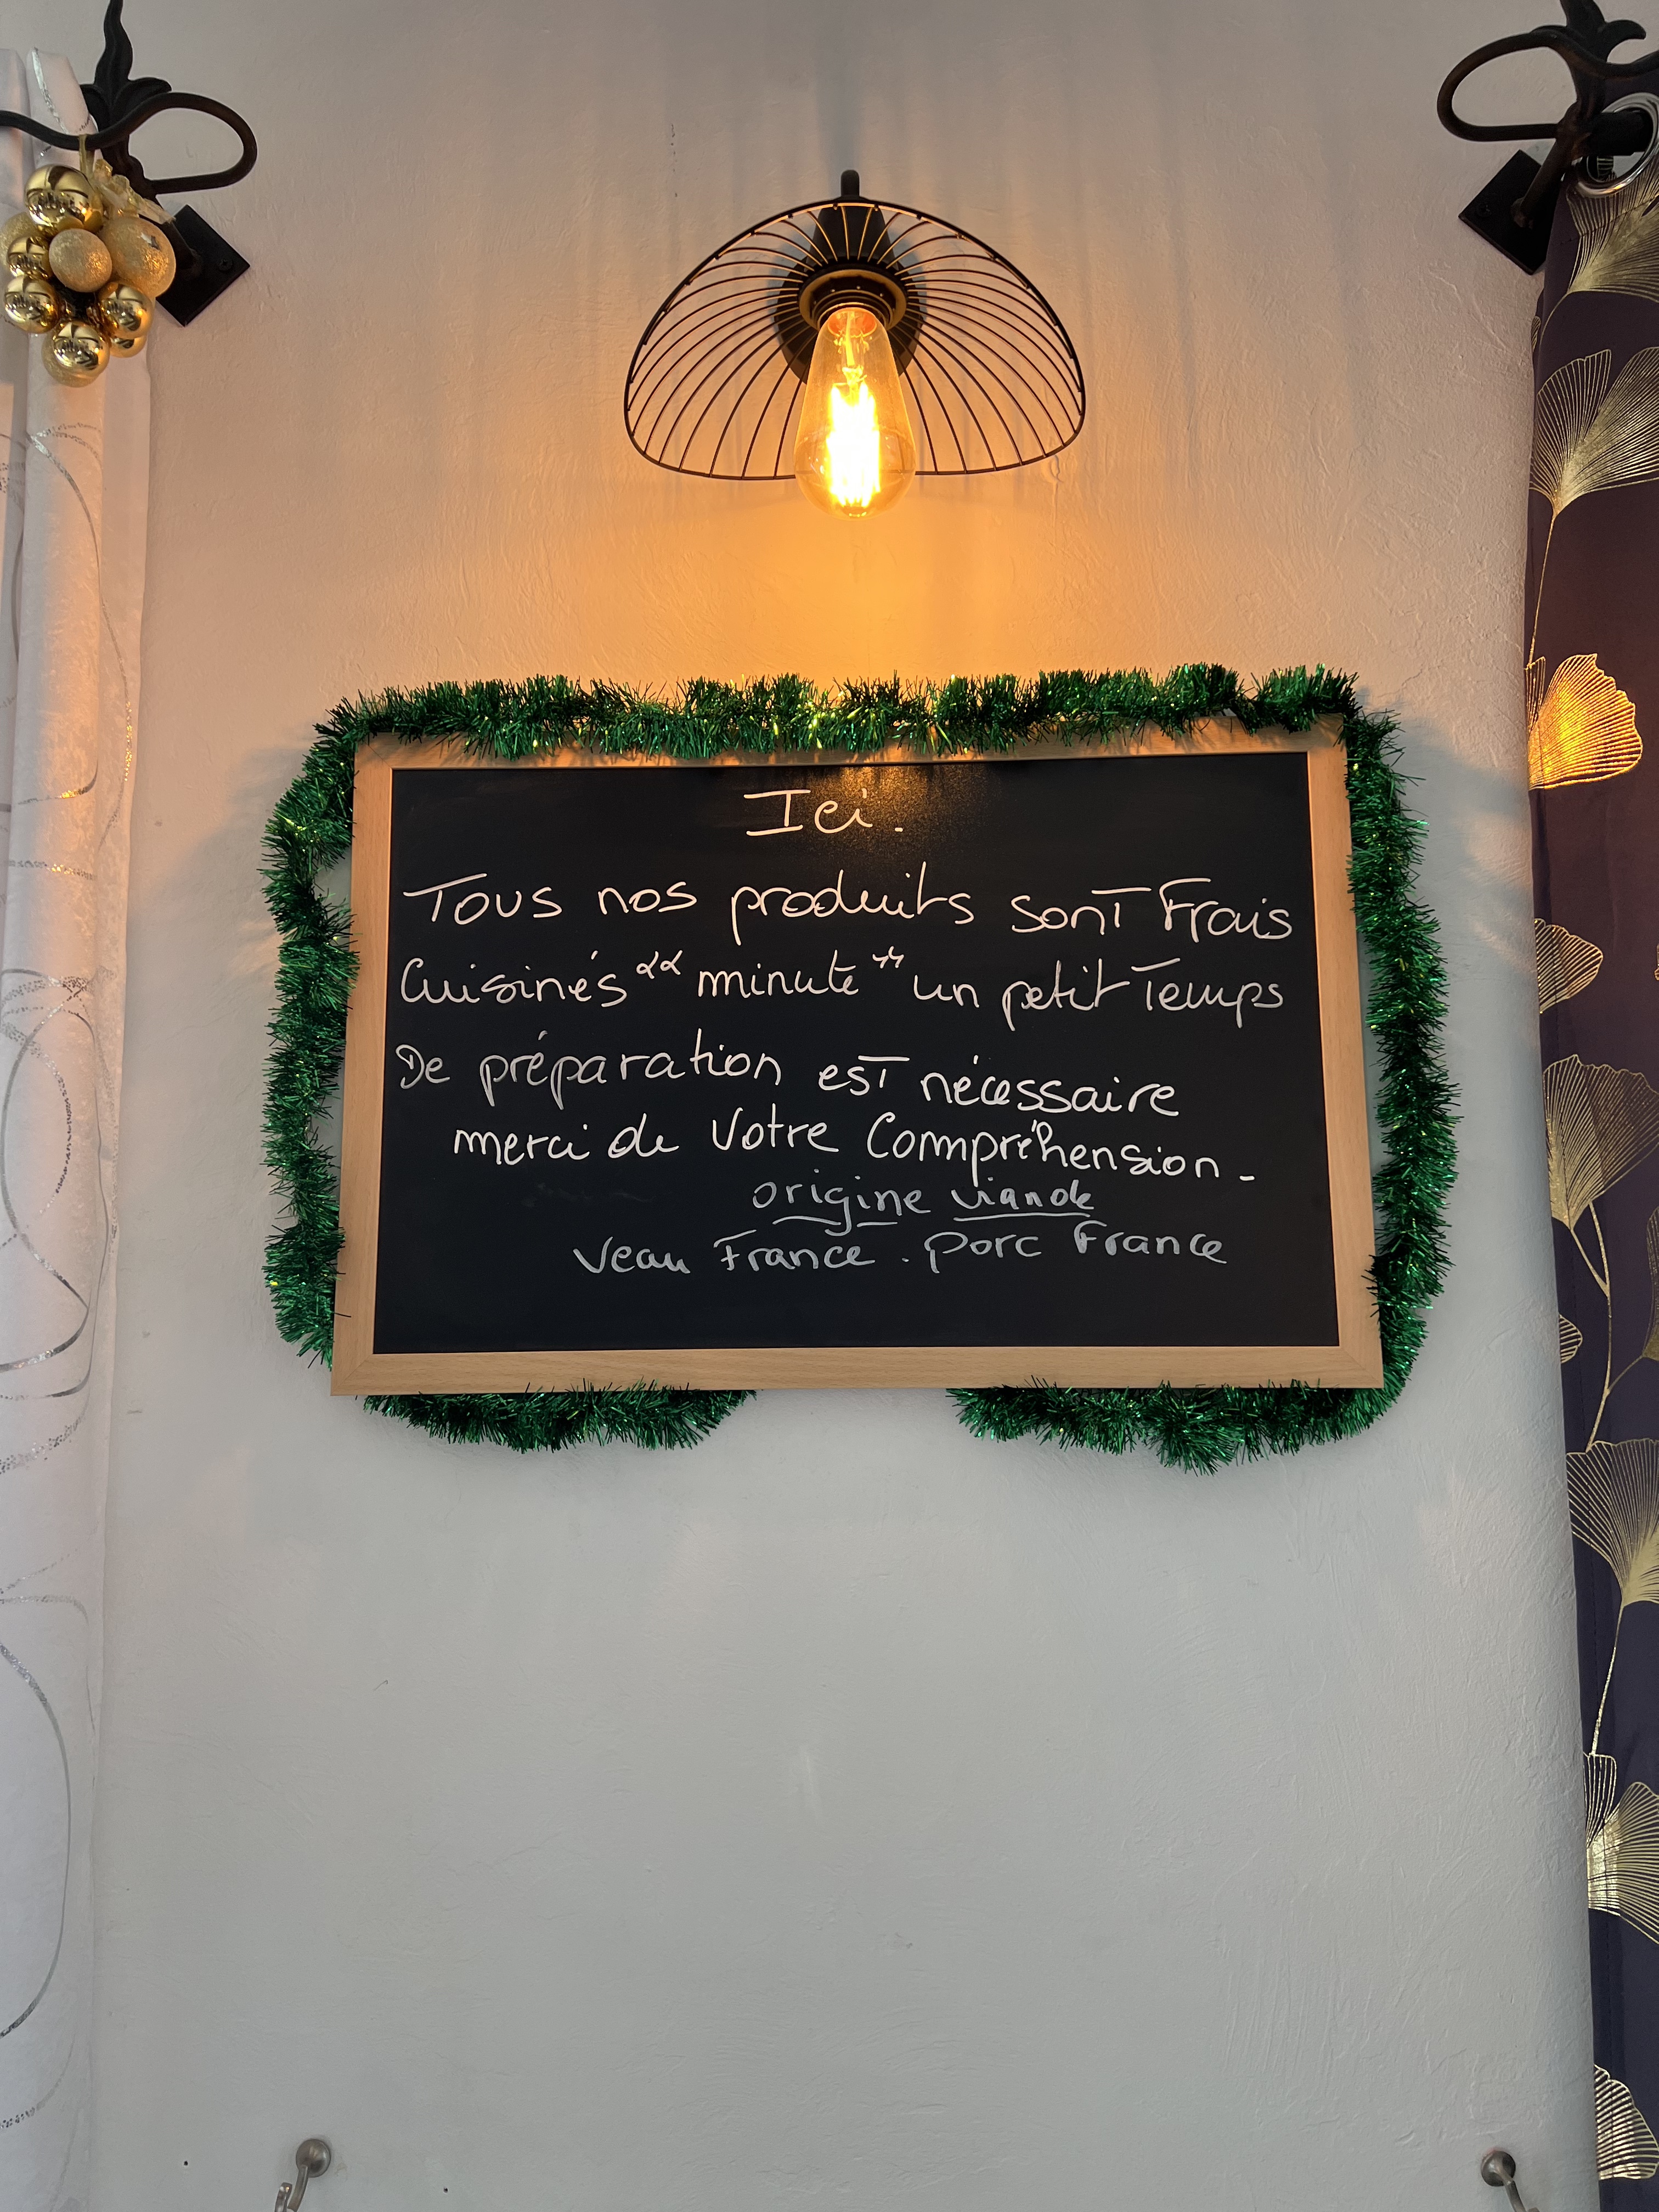 Ici.
Tous nos produits sont Frais
Cuisinés "minute" un petit Temps
De préparation est nécessaire
merci de Votre Compréhension -
origine viande
Veau France . porc France